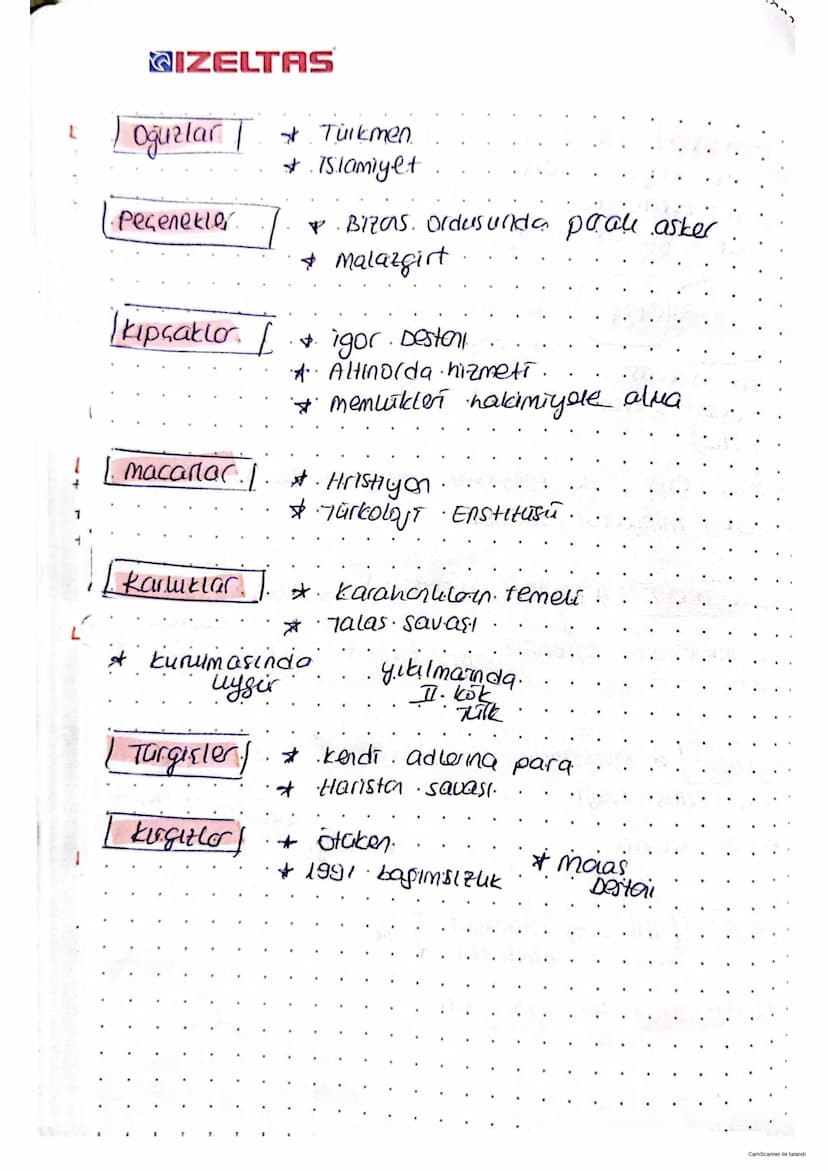 IZELTAS
Oğuzlar * Türkmen
* İslamiyet
Peçenekler * Bizans ordusunda paralı asker
* Malazgirt
Kıpçaklar * İgor Destanı
* Altınorda hizmeti
* Memlükleri hakimiyete alma
Macarlar * Hristiyan
* Türkoloji Enstitüsü
Karluklar * Karahanlıların temeli
* Talas savaşı
* kurulmasında yıkılmasında
uygur II. kök
Türk
Türgişler * kendi adlarına para
* Haristan savaşı
Kırgızlar * ötüken
* 1991 bağımsızlık * Manas
Destanı
CamScanner ile tarandı